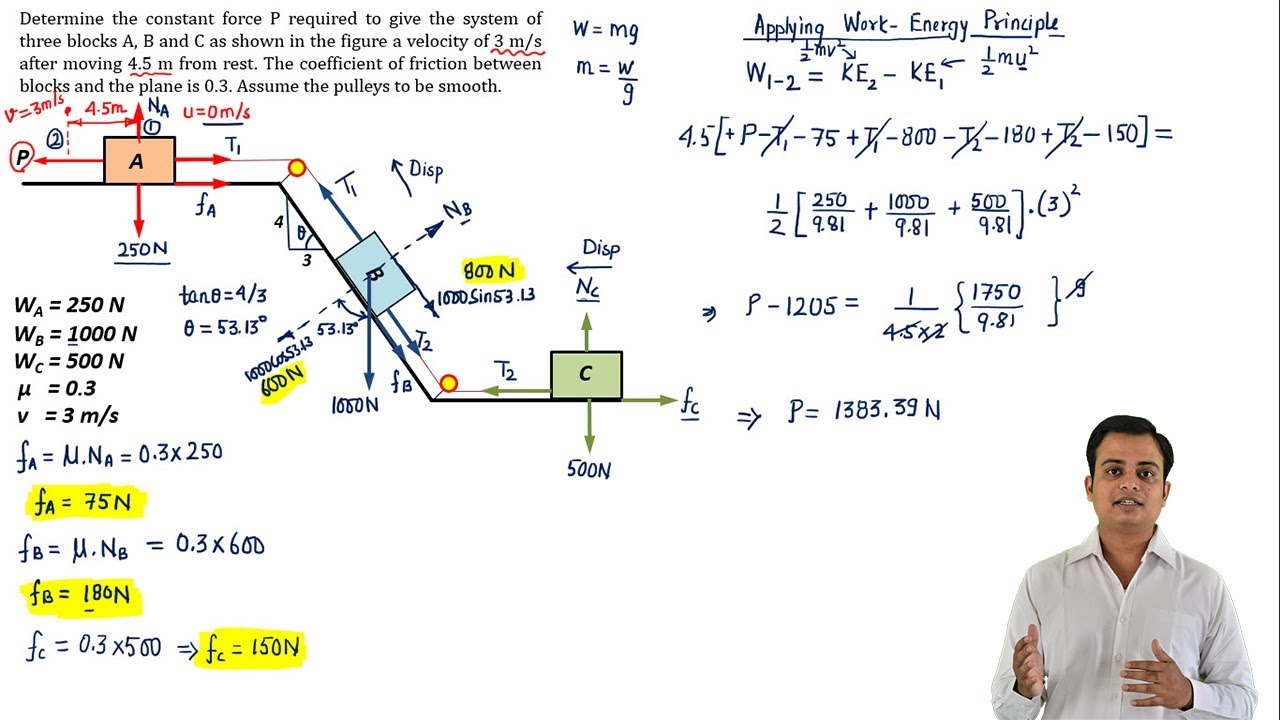 Determine the constant force P required to give the system of
three blocks A, B and C as shown in the figure a velocity of 3 m/s
after moving 4.5 m from rest. The coefficient of friction between
blocks and the plane is 0.3. Assume the pulleys to be smooth.
W = mg
m = W/g
Applying Work-Energy Principle
½mv²
W₁₋₂ = KE₂ - KE₁
½mu²
4.5[+P-T₁-75+T₁-800-T₂-180+T₂-150]=
1/2 [250/9.81 + 1000/9.81 + 500/9.81].(3)²
⇒ P-1205 = 1/(4.5×2) {1750/9.81} 9
⇒ P = 1383.39N
v=3m/s
4.5m
N_A
u=0m/s
②
①
P
A
T₁
f_A
250N
4
θ
3
tanθ=4/3
θ = 53.13°
T₁
Disp
N_B
B
800N
1000Sin53.13
53.13°
1000Cos53.13
600N
T₂
f_B
1000N
Disp
N_C
T₂
C
f_C
500N
W_A = 250 N
W_B = 1000 N
W_C = 500 N
μ = 0.3
v = 3 m/s
f_A = μ.N_A = 0.3×250
f_A = 75N
f_B = μ.N_B = 0.3×600
f_B = 180N
f_C = 0.3×500 ⇒ f_C = 150N